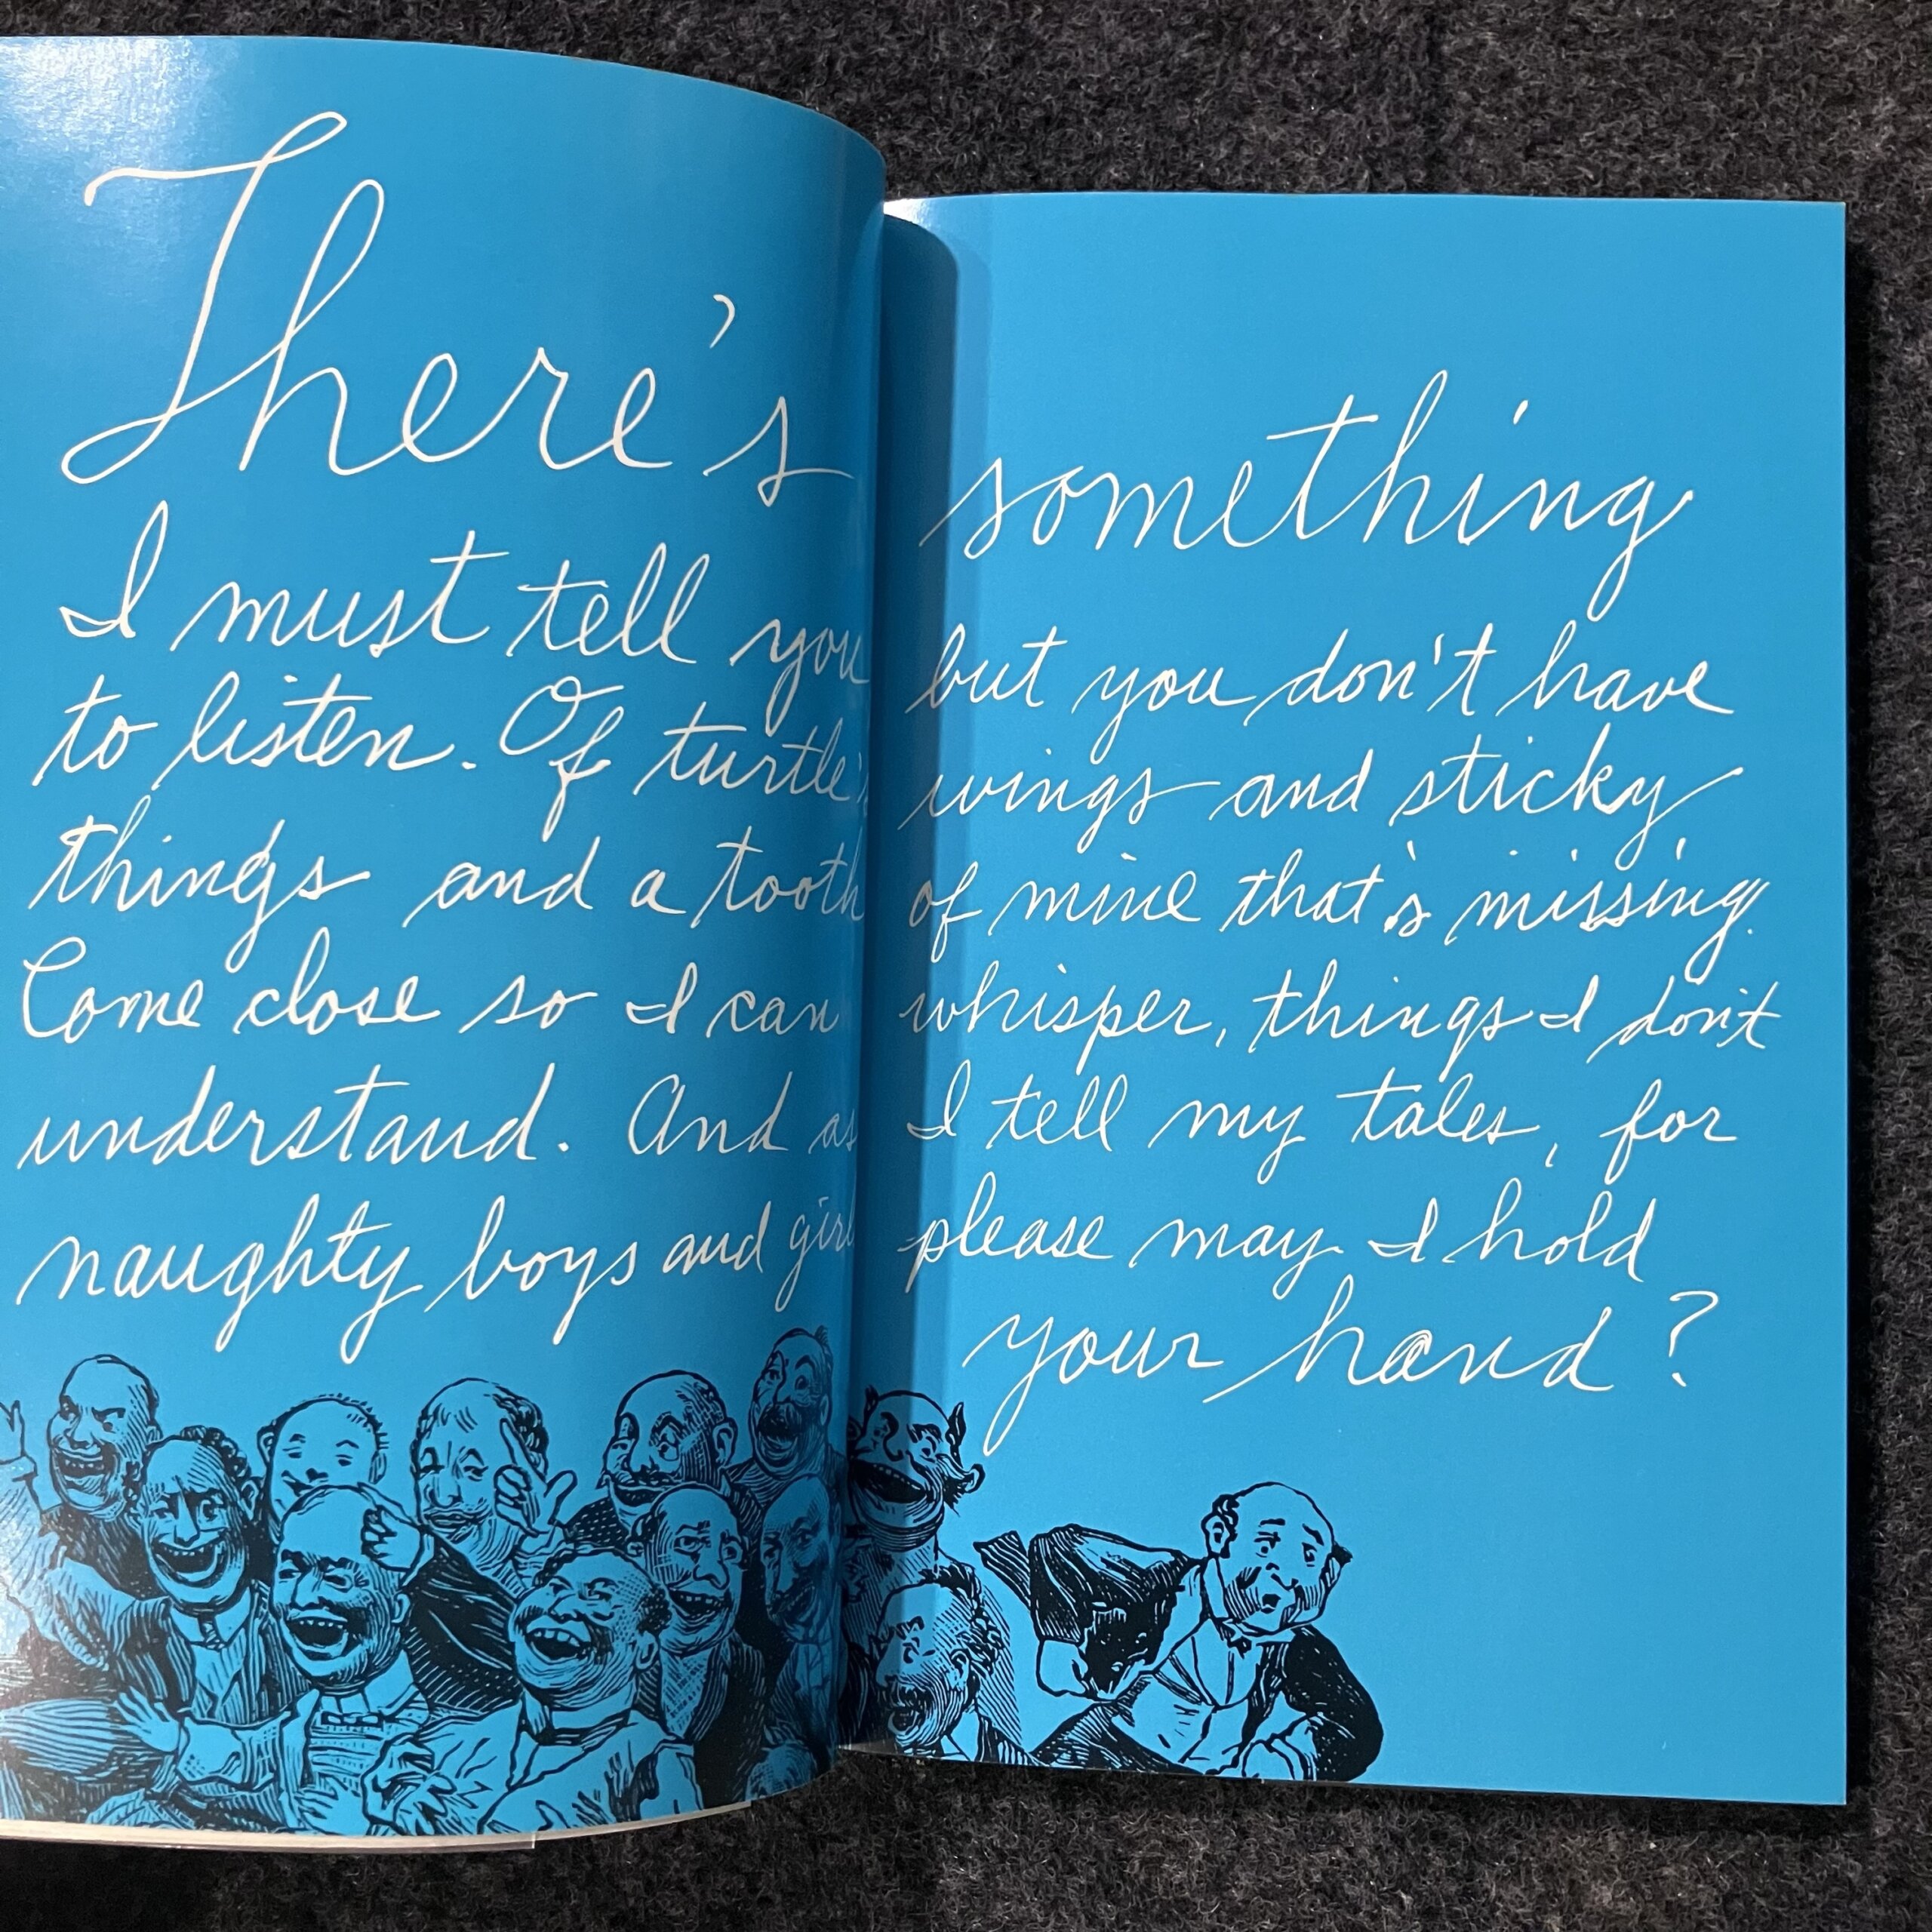 There's something
I must tell you but you don't have
to listen. Of turtle's wings and sticky
things and a tooth of mine that's missing.
Come close so I can whisper, things I don't
understand. And as I tell my tales, for
naughty boys and girl please may I hold
your hand?